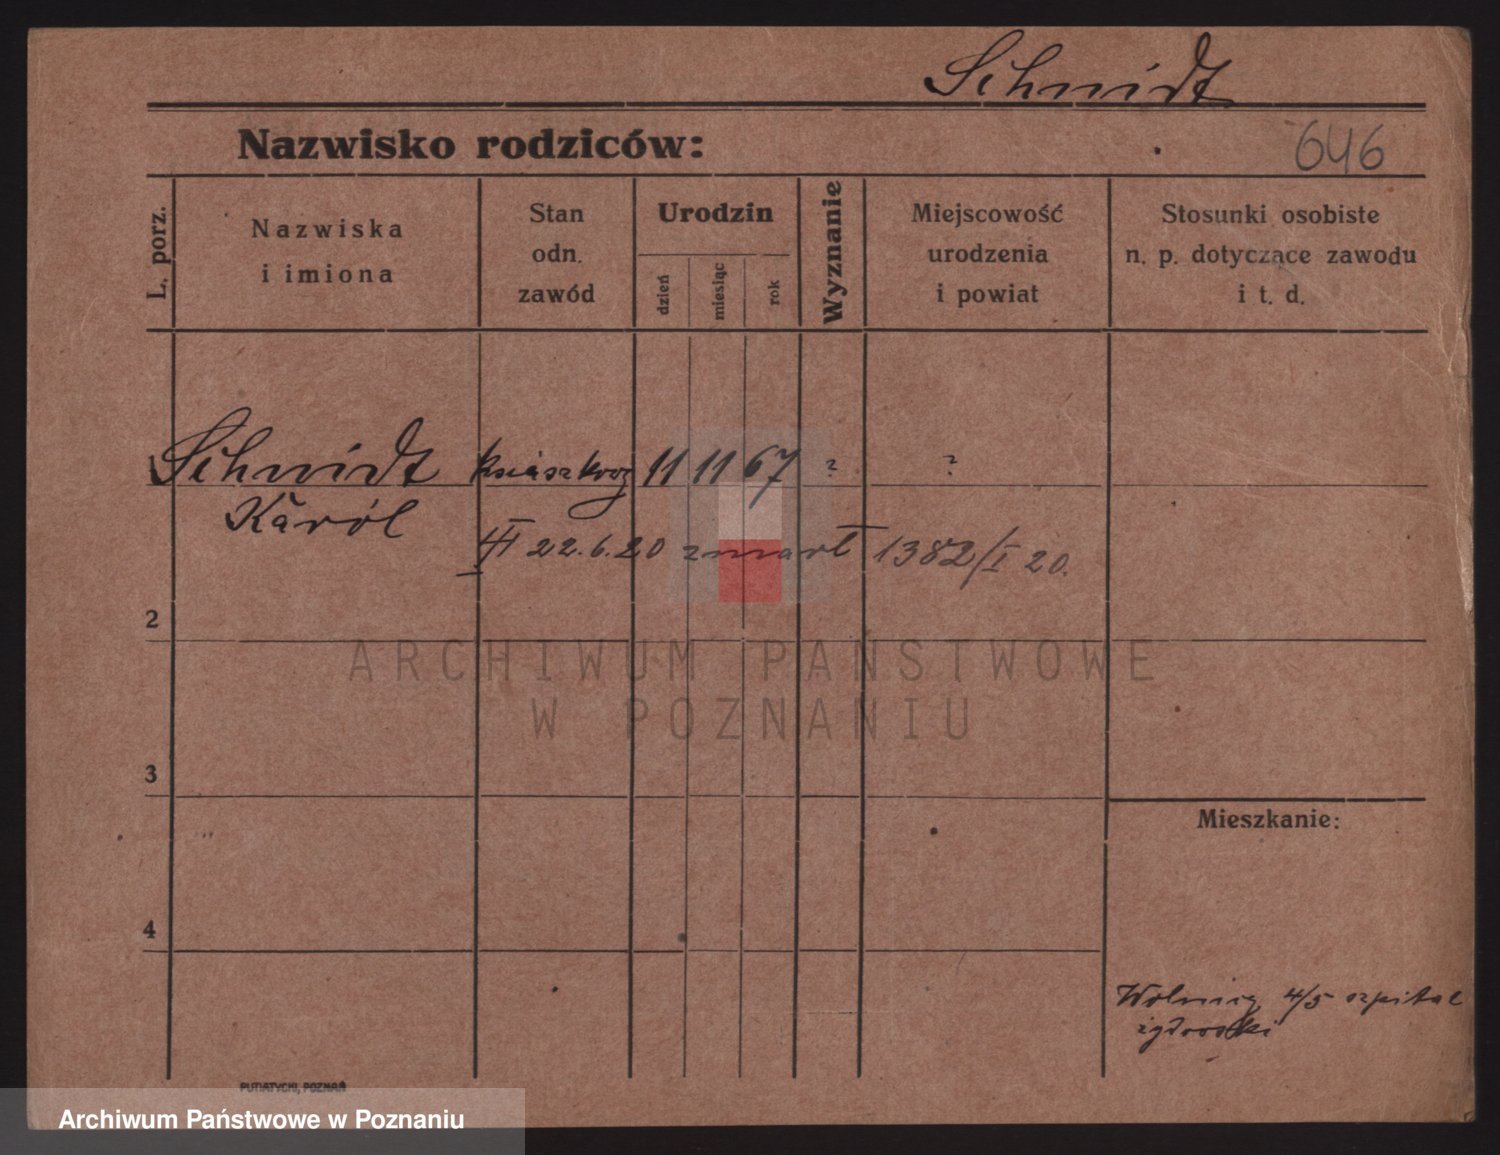 Schmidt
Nazwisko rodziców:
646
L. porz.
Nazwiska
i imiona
Stan
odn.
zawód
Urodzin
dzień
miesiąc
rok
Wyznanie
Miejscowość
urodzenia
i powiat
Stosunki osobiste
n. p. dotyczące zawodu
i t. d.
1 Schmidt 11 11 67 ? ?
Karól
22.6.20 zmarł 1382/I 20.
2
ARCHIWUM PAŃSTWOWE
W POZNANIU
3
Mieszkanie:
4
Wolnicy 4/5 szpital
żydowski
PUTIATYCKI, POZNAŃ
Archiwum Państwowe w Poznaniu